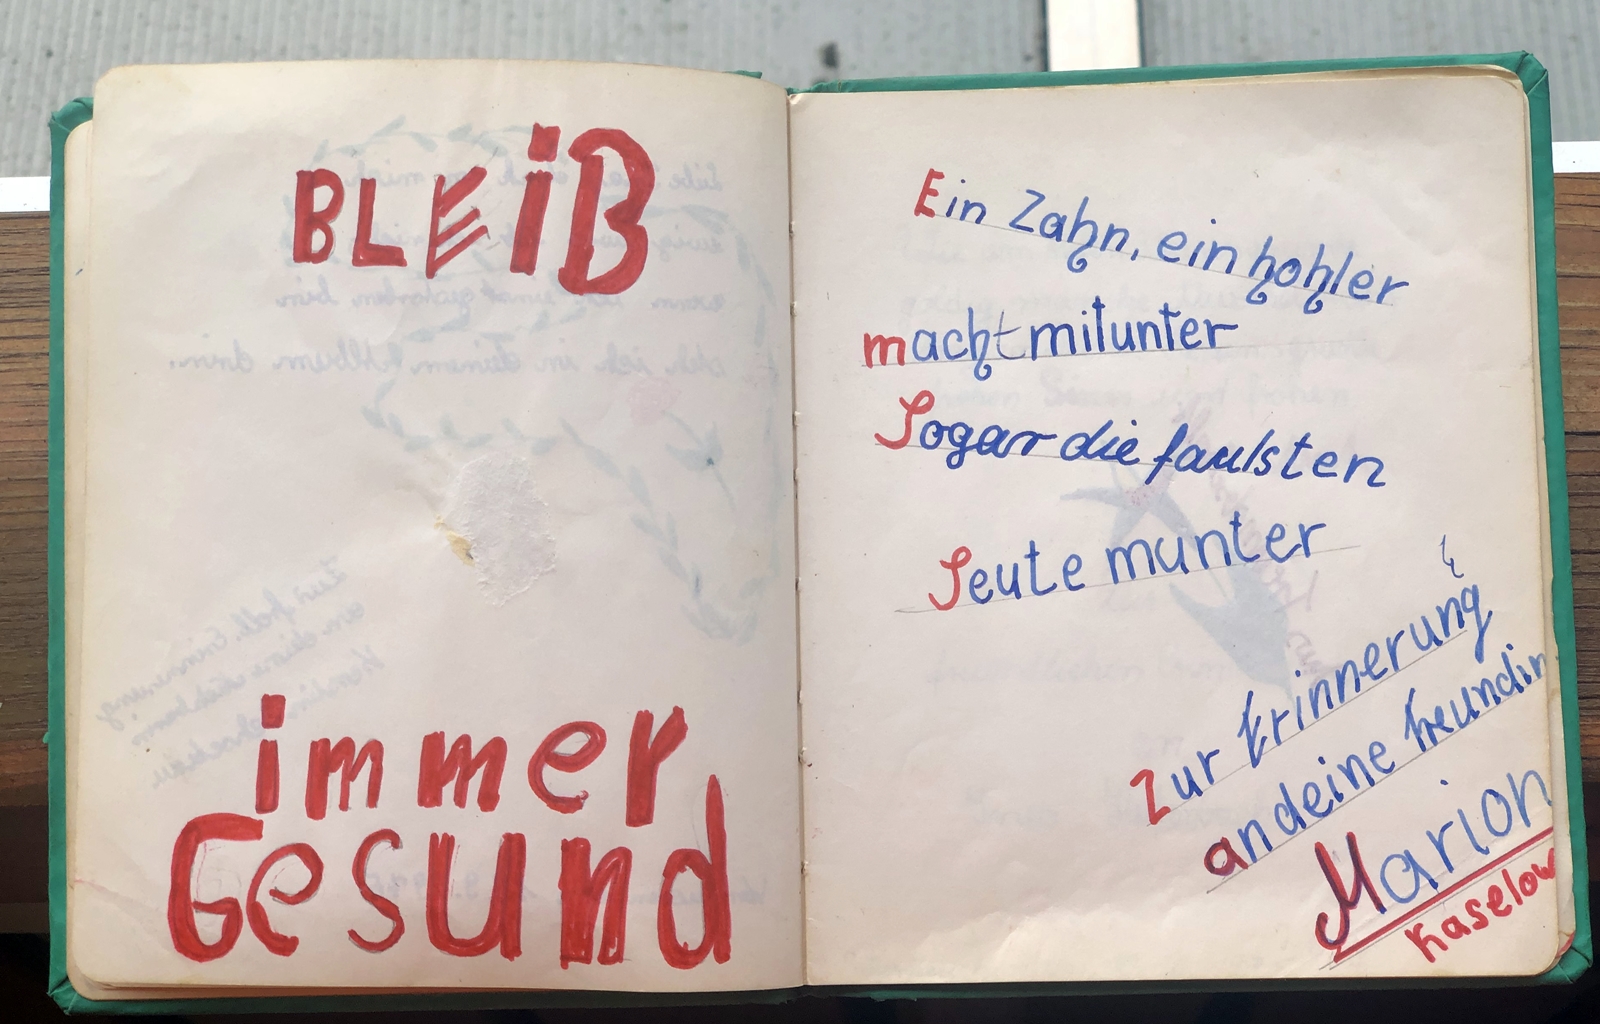 BLEIB
immer
Gesund
Ein Zahn, ein hohler
macht mitunter
Sogar die faulsten
Leute munter
Zur Erinnerung
an deine Freundin
Marion
Kaselow